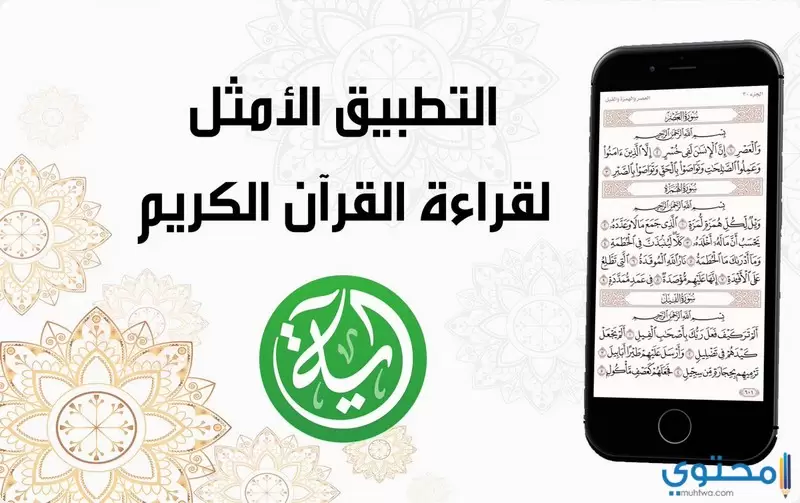 التطبيق الأمثل
لقراءة القرآن الكريم
آية
الجزء ٣٠
العصر والهمزة والفيل
سُورَةُ العَصْرِ
بِسْمِ اللَّهِ الرَّحْمَٰنِ الرَّحِيمِ
وَالْعَصْرِ ١ إِنَّ الْإِنسَٰنَ لَفِى خُسْرٍ ٢ إِلَّا الَّذِينَ ءَامَنُوا
وَعَمِلُوا الصَّٰلِحَٰتِ وَتَوَاصَوْا بِالْحَقِّ وَتَوَاصَوْا بِالصَّبْرِ ٣
سُورَةُ الهُمَزَةِ
بِسْمِ اللَّهِ الرَّحْمَٰنِ الرَّحِيمِ
وَيْلٌ لِّكُلِّ هُمَزَةٍ لُّمَزَةٍ ١ الَّذِى جَمَعَ مَالًا وَعَدَّدَهُۥ ٢
يَحْسَبُ أَنَّ مَالَهُۥٓ أَخْلَدَهُۥ ٣ كَلَّا لَيُنۢبَذَنَّ فِى الْحُطَمَةِ ٤
وَمَآ أَدْرَىٰكَ مَا الْحُطَمَةُ ٥ نَارُ اللَّهِ الْمُوقَدَةُ ٦ الَّتِى تَطَّلِعُ
عَلَى الْأَفْـِٔدَةِ ٧ إِنَّهَا عَلَيْهِم مُّؤْصَدَةٌ ٨ فِى عَمَدٍ مُّمَدَّدَةٍۭ ٩
سُورَةُ الفِيلِ
بِسْمِ اللَّهِ الرَّحْمَٰنِ الرَّحِيمِ
أَلَمْ تَرَ كَيْفَ فَعَلَ رَبُّكَ بِأَصْحَٰبِ الْفِيلِ ١ أَلَمْ يَجْعَلْ
كَيْدَهُمْ فِى تَضْلِيلٍ ٢ وَأَرْسَلَ عَلَيْهِمْ طَيْرًا أَبَابِيلَ ٣
تَرْمِيهِم بِحِجَارَةٍ مِّن سِجِّيلٍ ٤ فَجَعَلَهُمْ كَعَصْفٍ مَّأْكُولٍۭ ٥
٦٠١
محتوى
muhtwa.com